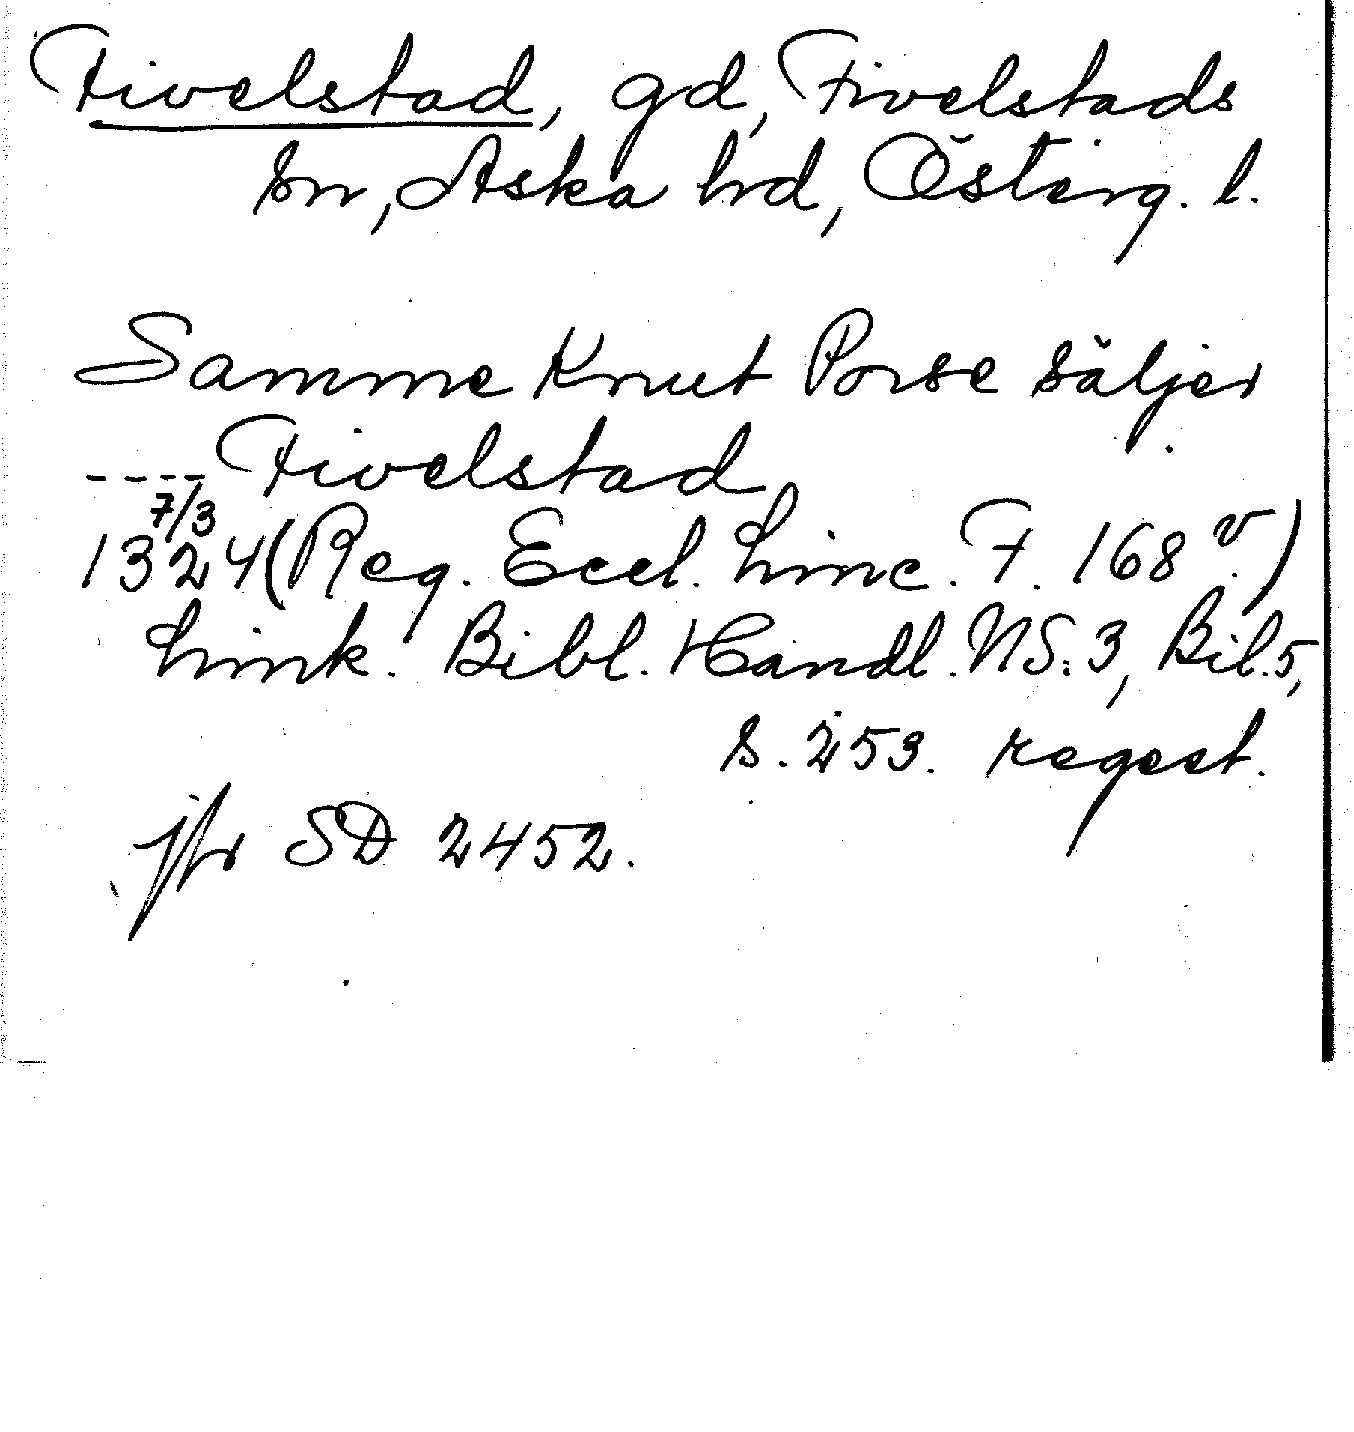 Fivelstad, gd, Fivelstads
sn, Aska hrd, Österg. l.
Samme Knut Porse säljer
---- Fivelstad
7/3
1324 (Reg. Eccl. Linc. F. 168 v.)
Link. Bibl. Handl. NS. 3, Bil. 5,
s. 253. regest.
jfr SD 2452.